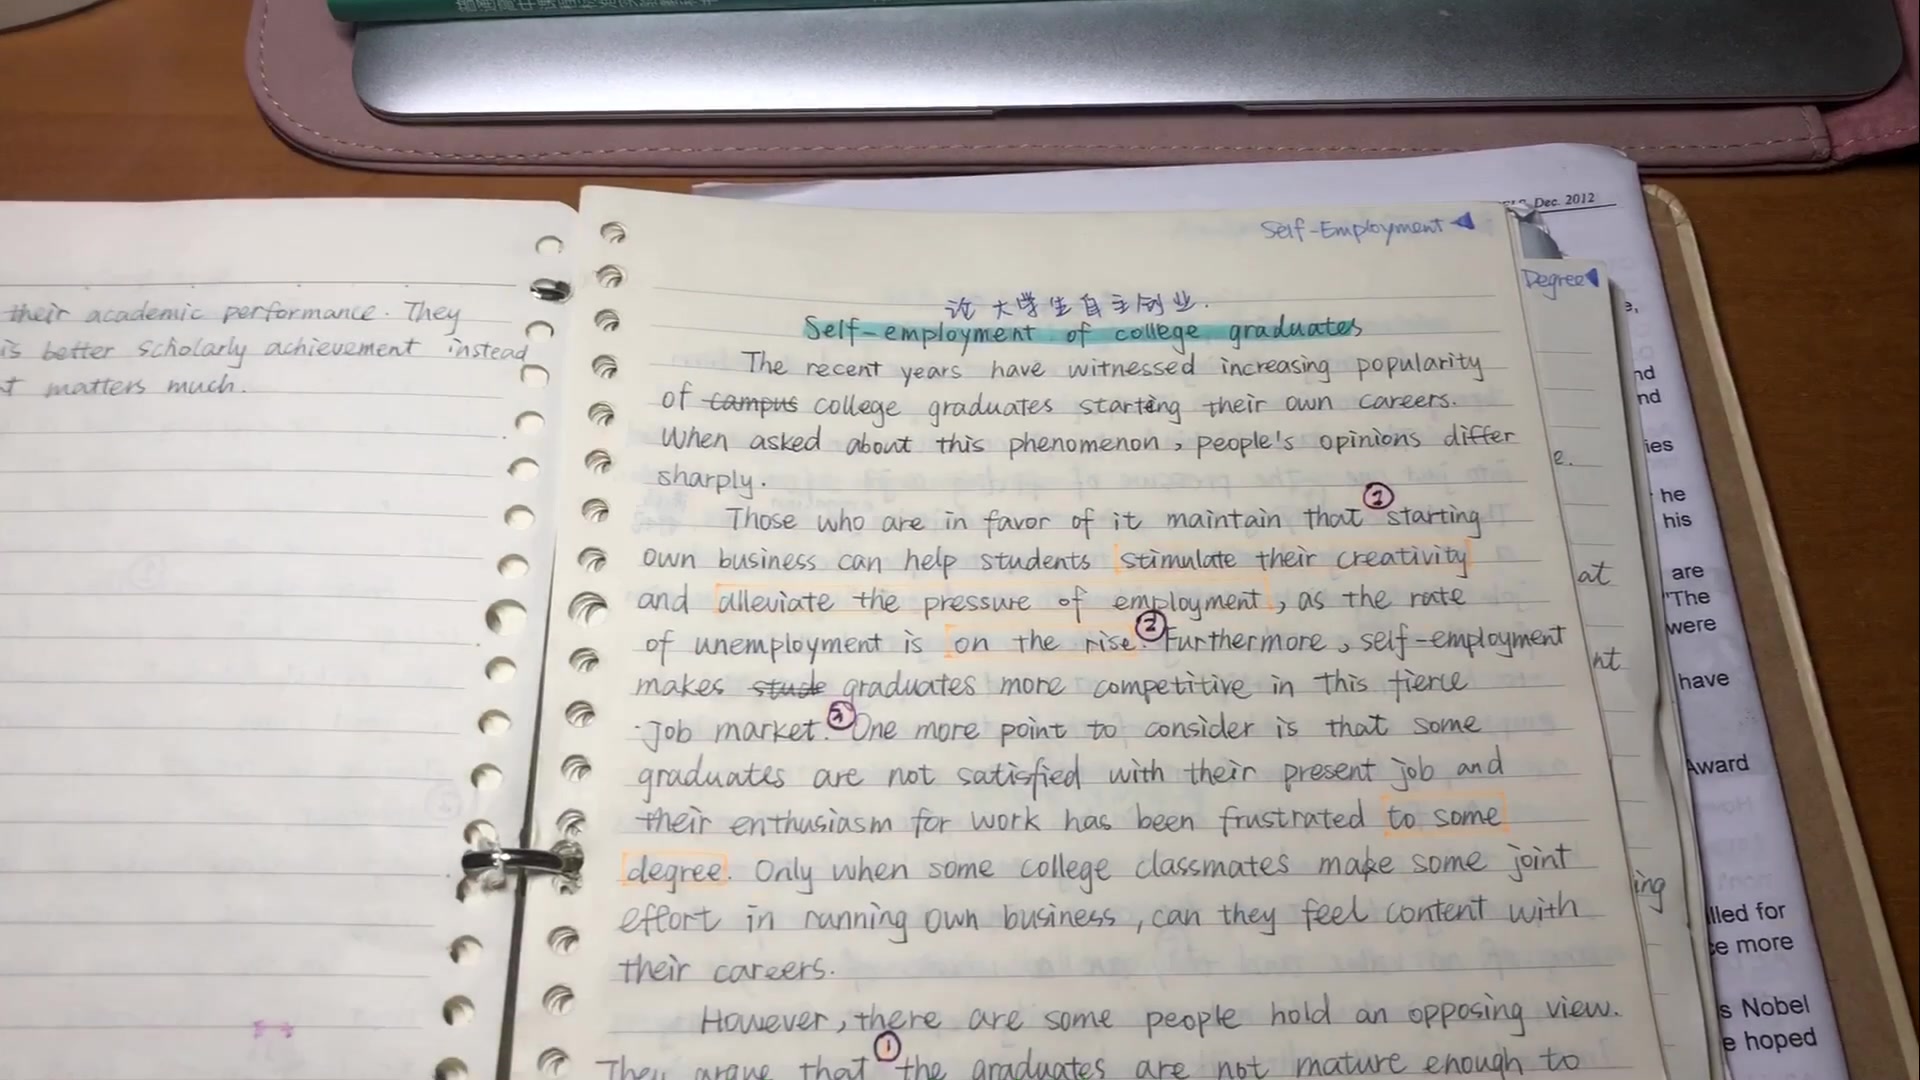 Dec. 2012
Self-Employment
Degree
their academic performance. They
is better scholarly achievement instead
t matters much.
论大学生自主创业.
Self-employment of college graduates
The recent years have witnessed increasing popularity
of campus college graduates starting their own careers.
When asked about this phenomenon, people's opinions differ
sharply.
Those who are in favor of it maintain that ① starting
own business can help students stimulate their creativity
and alleviate the pressure of employment, as the rate
of unemployment is on the rise. ② Furthermore, self-employment
makes stude graduates more competitive in this fierce
job market. ③ One more point to consider is that some
graduates are not satisfied with their present job and
their enthusiasm for work has been frustrated to some
degree. Only when some college classmates make some joint
effort in running own business, can they feel content with
their careers.
However, there are some people hold an opposing view.
They argue that ① the graduates are not mature enough to
e.
at
nt
ing
e,
nd
nd
ies
he
his
are
'The
were
have
Award
lled for
ce more
s Nobel
e hoped